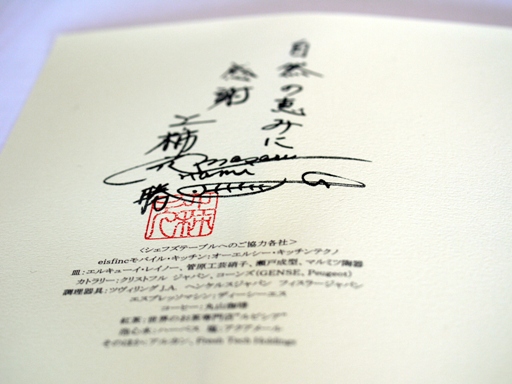 自然の恵みに
感謝
上柿元
勝
<シェフズテーブルへのご協力各社>
eisfincモバイル・キッチン:オーエルシー・キッチンテクノ
皿:エルキューイ・レイノー、菅原工芸硝子、瀬戸成型、マルミツ陶器
カトラリー:クリストフル ジャパン、コーンズ(GENSE, Peugeot)
調理器具:ツヴィリングJ.A. ヘンケルスジャパン フィスラージャパン
エスプレッソマシン:ディーシーエス
コーヒー:丸山珈琲
紅茶:世界のお茶専門店"ルピシア"